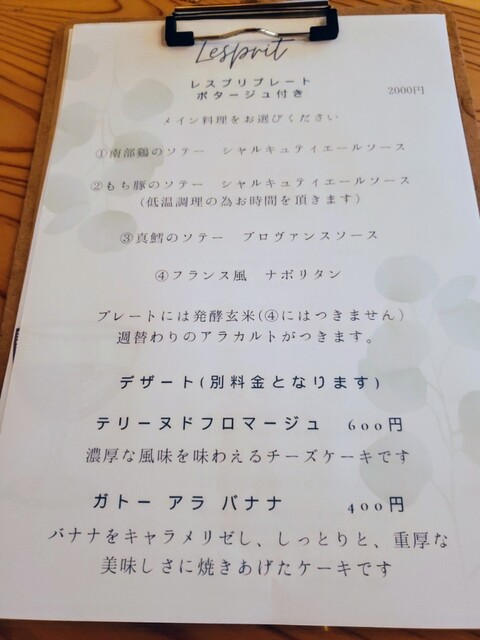 Lesprit
レスプリプレート
ポタージュ付き 2000円
メイン料理をお選びください
①南部鶏のソテー シャルキュティエールソース
②もち豚のソテー シャルキュティエールソース
(低温調理の為お時間を頂きます)
③真鱈のソテー プロヴァンスソース
④フランス風 ナポリタン
プレートには発酵玄米(④にはつきません)
週替わりのアラカルトがつきます。
デザート(別料金となります)
テリーヌドフロマージュ 600円
濃厚な風味を味わえるチーズケーキです
ガトー アラ バナナ 400円
バナナをキャラメリゼし、しっとりと、重厚な
美味しさに焼きあげたケーキです